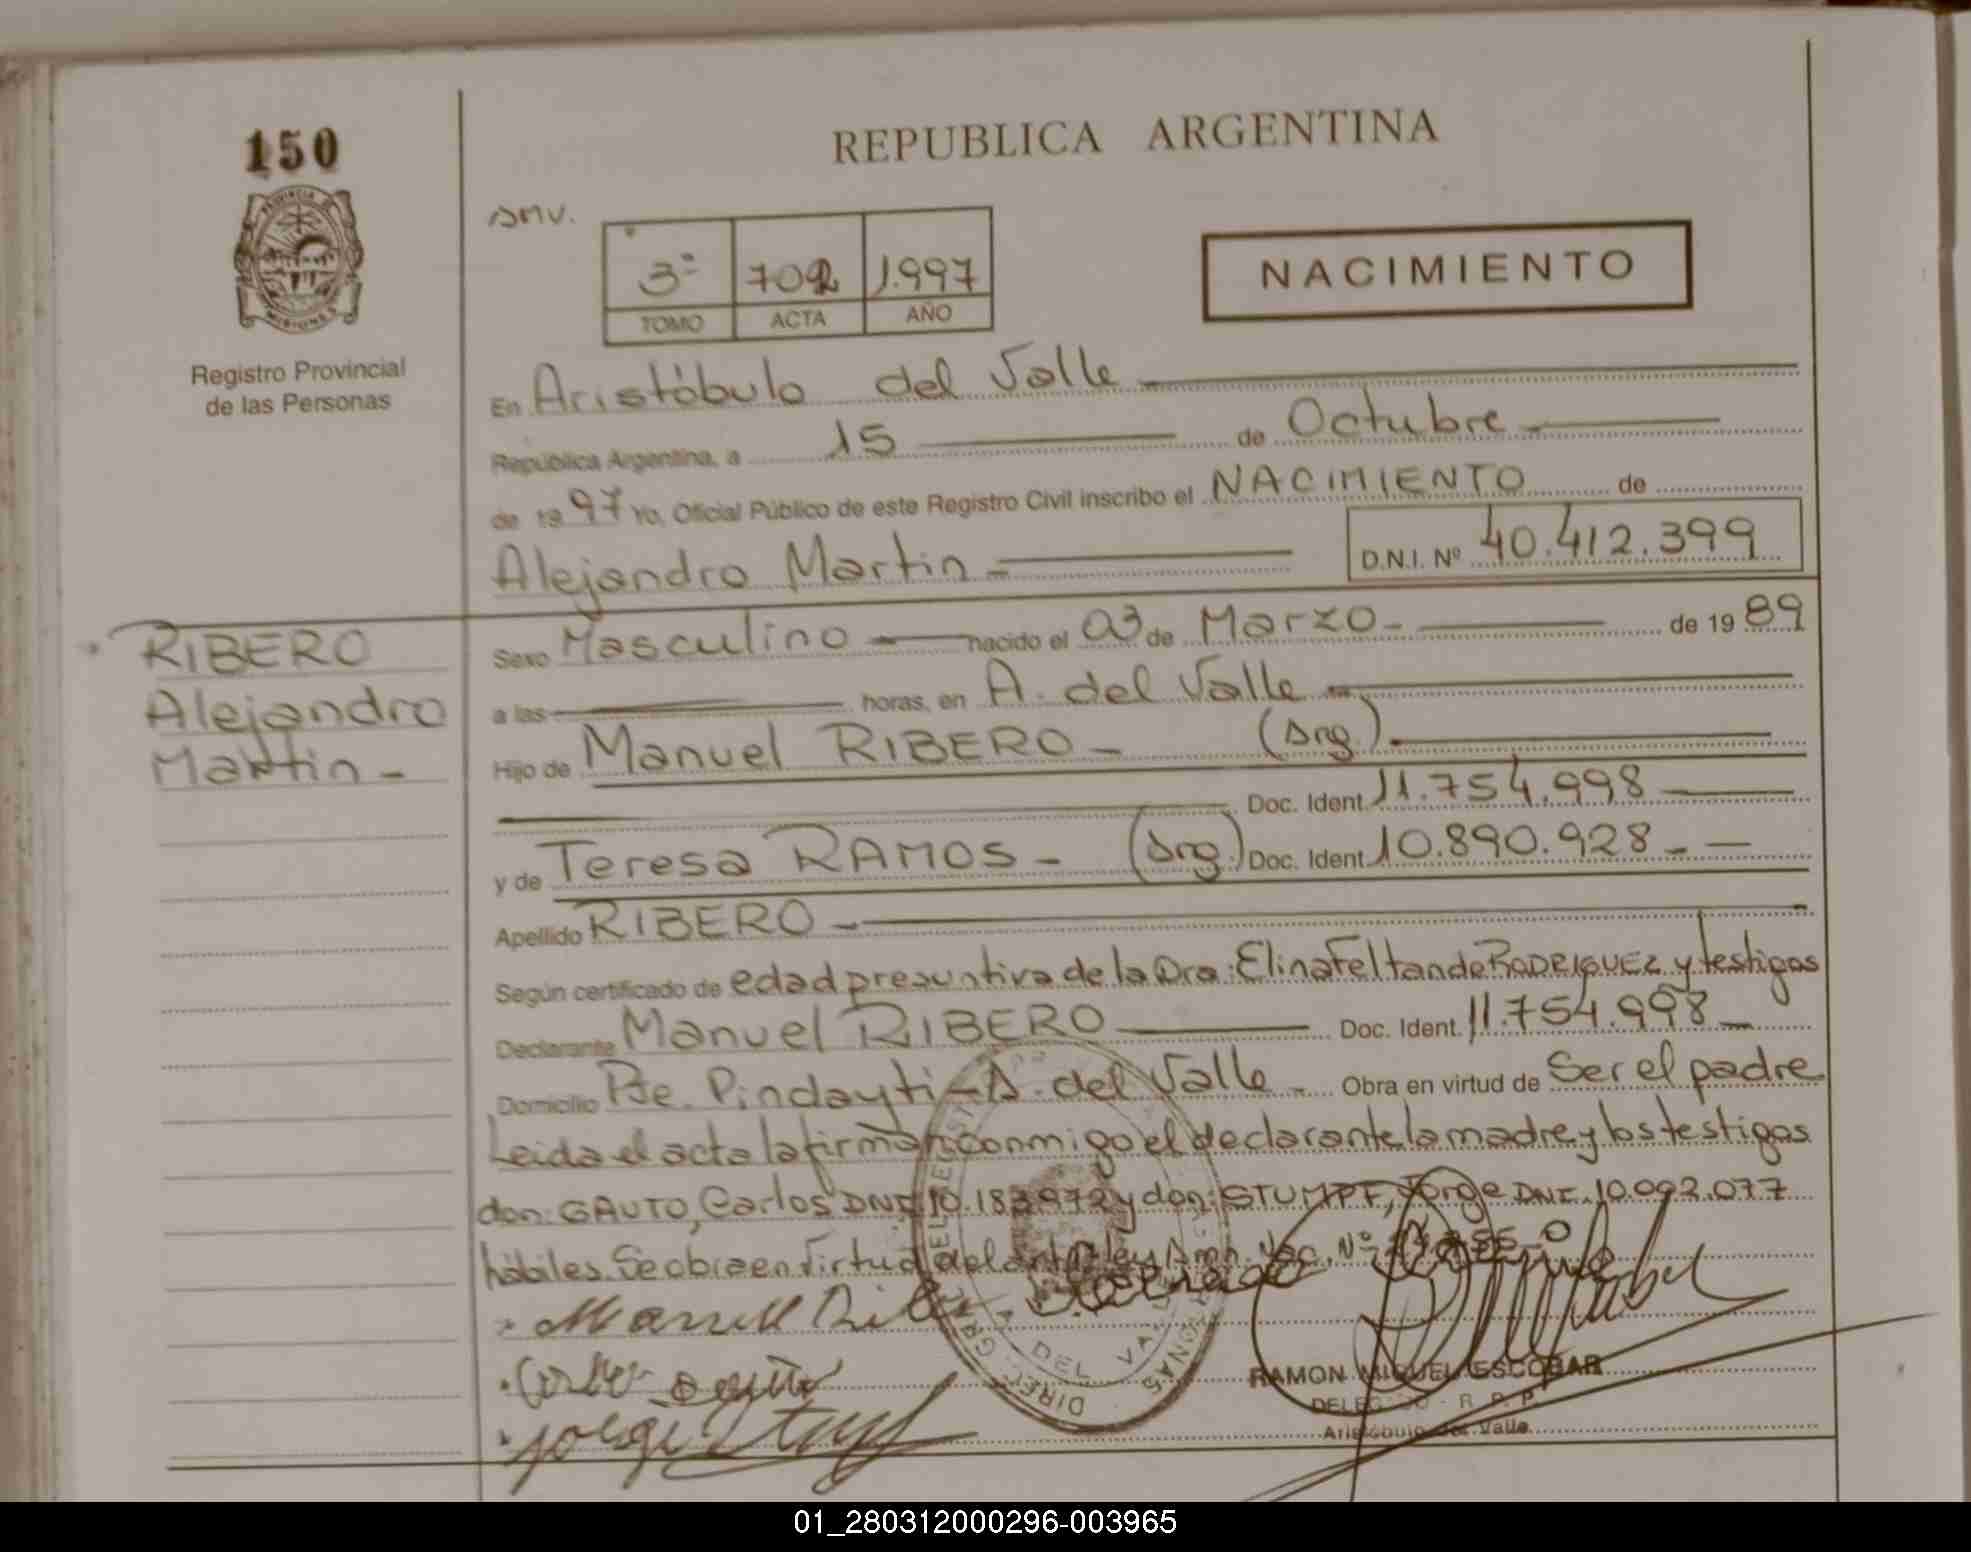 150
REPUBLICA ARGENTINA
PROVINCIA DE
MISIONES
Registro Provincial
de las Personas
SMV.
3º 702 1.997
TOMO ACTA AÑO
NACIMIENTO
En Aristóbulo del Valle
República Argentina, a 15 de Octubre
de 1997 Yo, Oficial Público de este Registro Civil inscribo el NACIMIENTO de
Alejandro Martin D.N.I. Nº 40.412.399
RIBERO
Alejandro
Martin -
Sexo Masculino nacido el 03 de Marzo - de 1989
a las horas, en A. del Valle
Hijo de Manuel RIBERO - (Arg.)
Doc. Ident. 11.754.998
y de Teresa RAMOS - (Arg.) Doc. Ident. 10.890.928 - -
Apellido RIBERO -
Según certificado de edad presuntiva de la Dra: Elina Feltan de RODRIGUEZ y testigos
Declarante Manuel RIBERO Doc. Ident. 11.754.998
Domicilio Pje. Pindayti - A. del Valle - Obra en virtud de Ser el padre
Leida el acta la firman conmigo el declarante la madre y los testigos
don: GAUTO, Carlos DNI 10.183.972 y don: STUMPF, Jorge DNI. 10.092.077
hábiles. Se obra en virtud del Ley Amn. Nac. Nº
Manuel Ribero
Jorge Stumpf
RAMON MIGUEL ESCOBAR
DELEGADO - R. P. P.
Aristóbulo del Valle
01_280312000296-003965